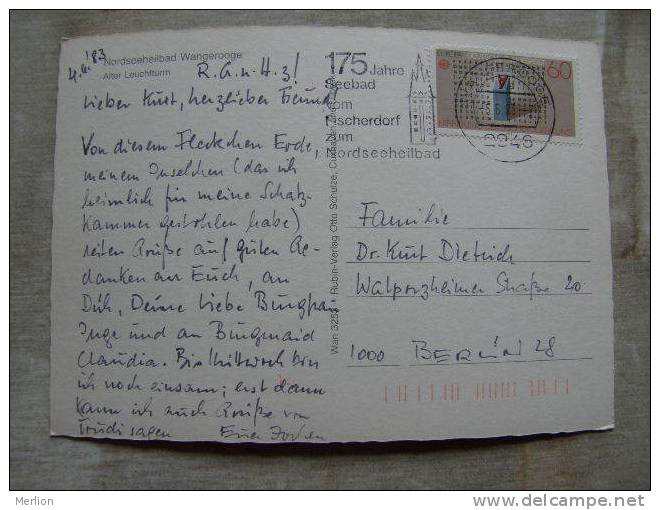 4.6.'83
Nordseeheilbad Wangerooge
Alter Leuchtturm
R.G.n.H.z!
Lieber Kurt, herzlieber Freund!
Von diesem Fleckchen Erde,
meinem Inselchen (das ich
heimlich für meine Schatz-
kammer gestohlen habe)
reiten Grüße auf guten Ge-
danken zu Euch, an
Dich, Deine liebe Burgfrau
Inge und an Burgmaid
Claudia. Bis Mittwoch bin
ich noch einsam; erst dann
kann ich auch Grüße von
Trudi sagen Euer
Wan 3253 Rubin-Verlag Otto Schulze,
175 Jahre
Seebad
vom
Fischerdorf
zum
Nordseeheilbad
60
2946
Familie
Dr. Kurt Dietrich
Walporzheimer Straße 20
1000 BERLIN 28
Merlion
http://www.delcampe.net